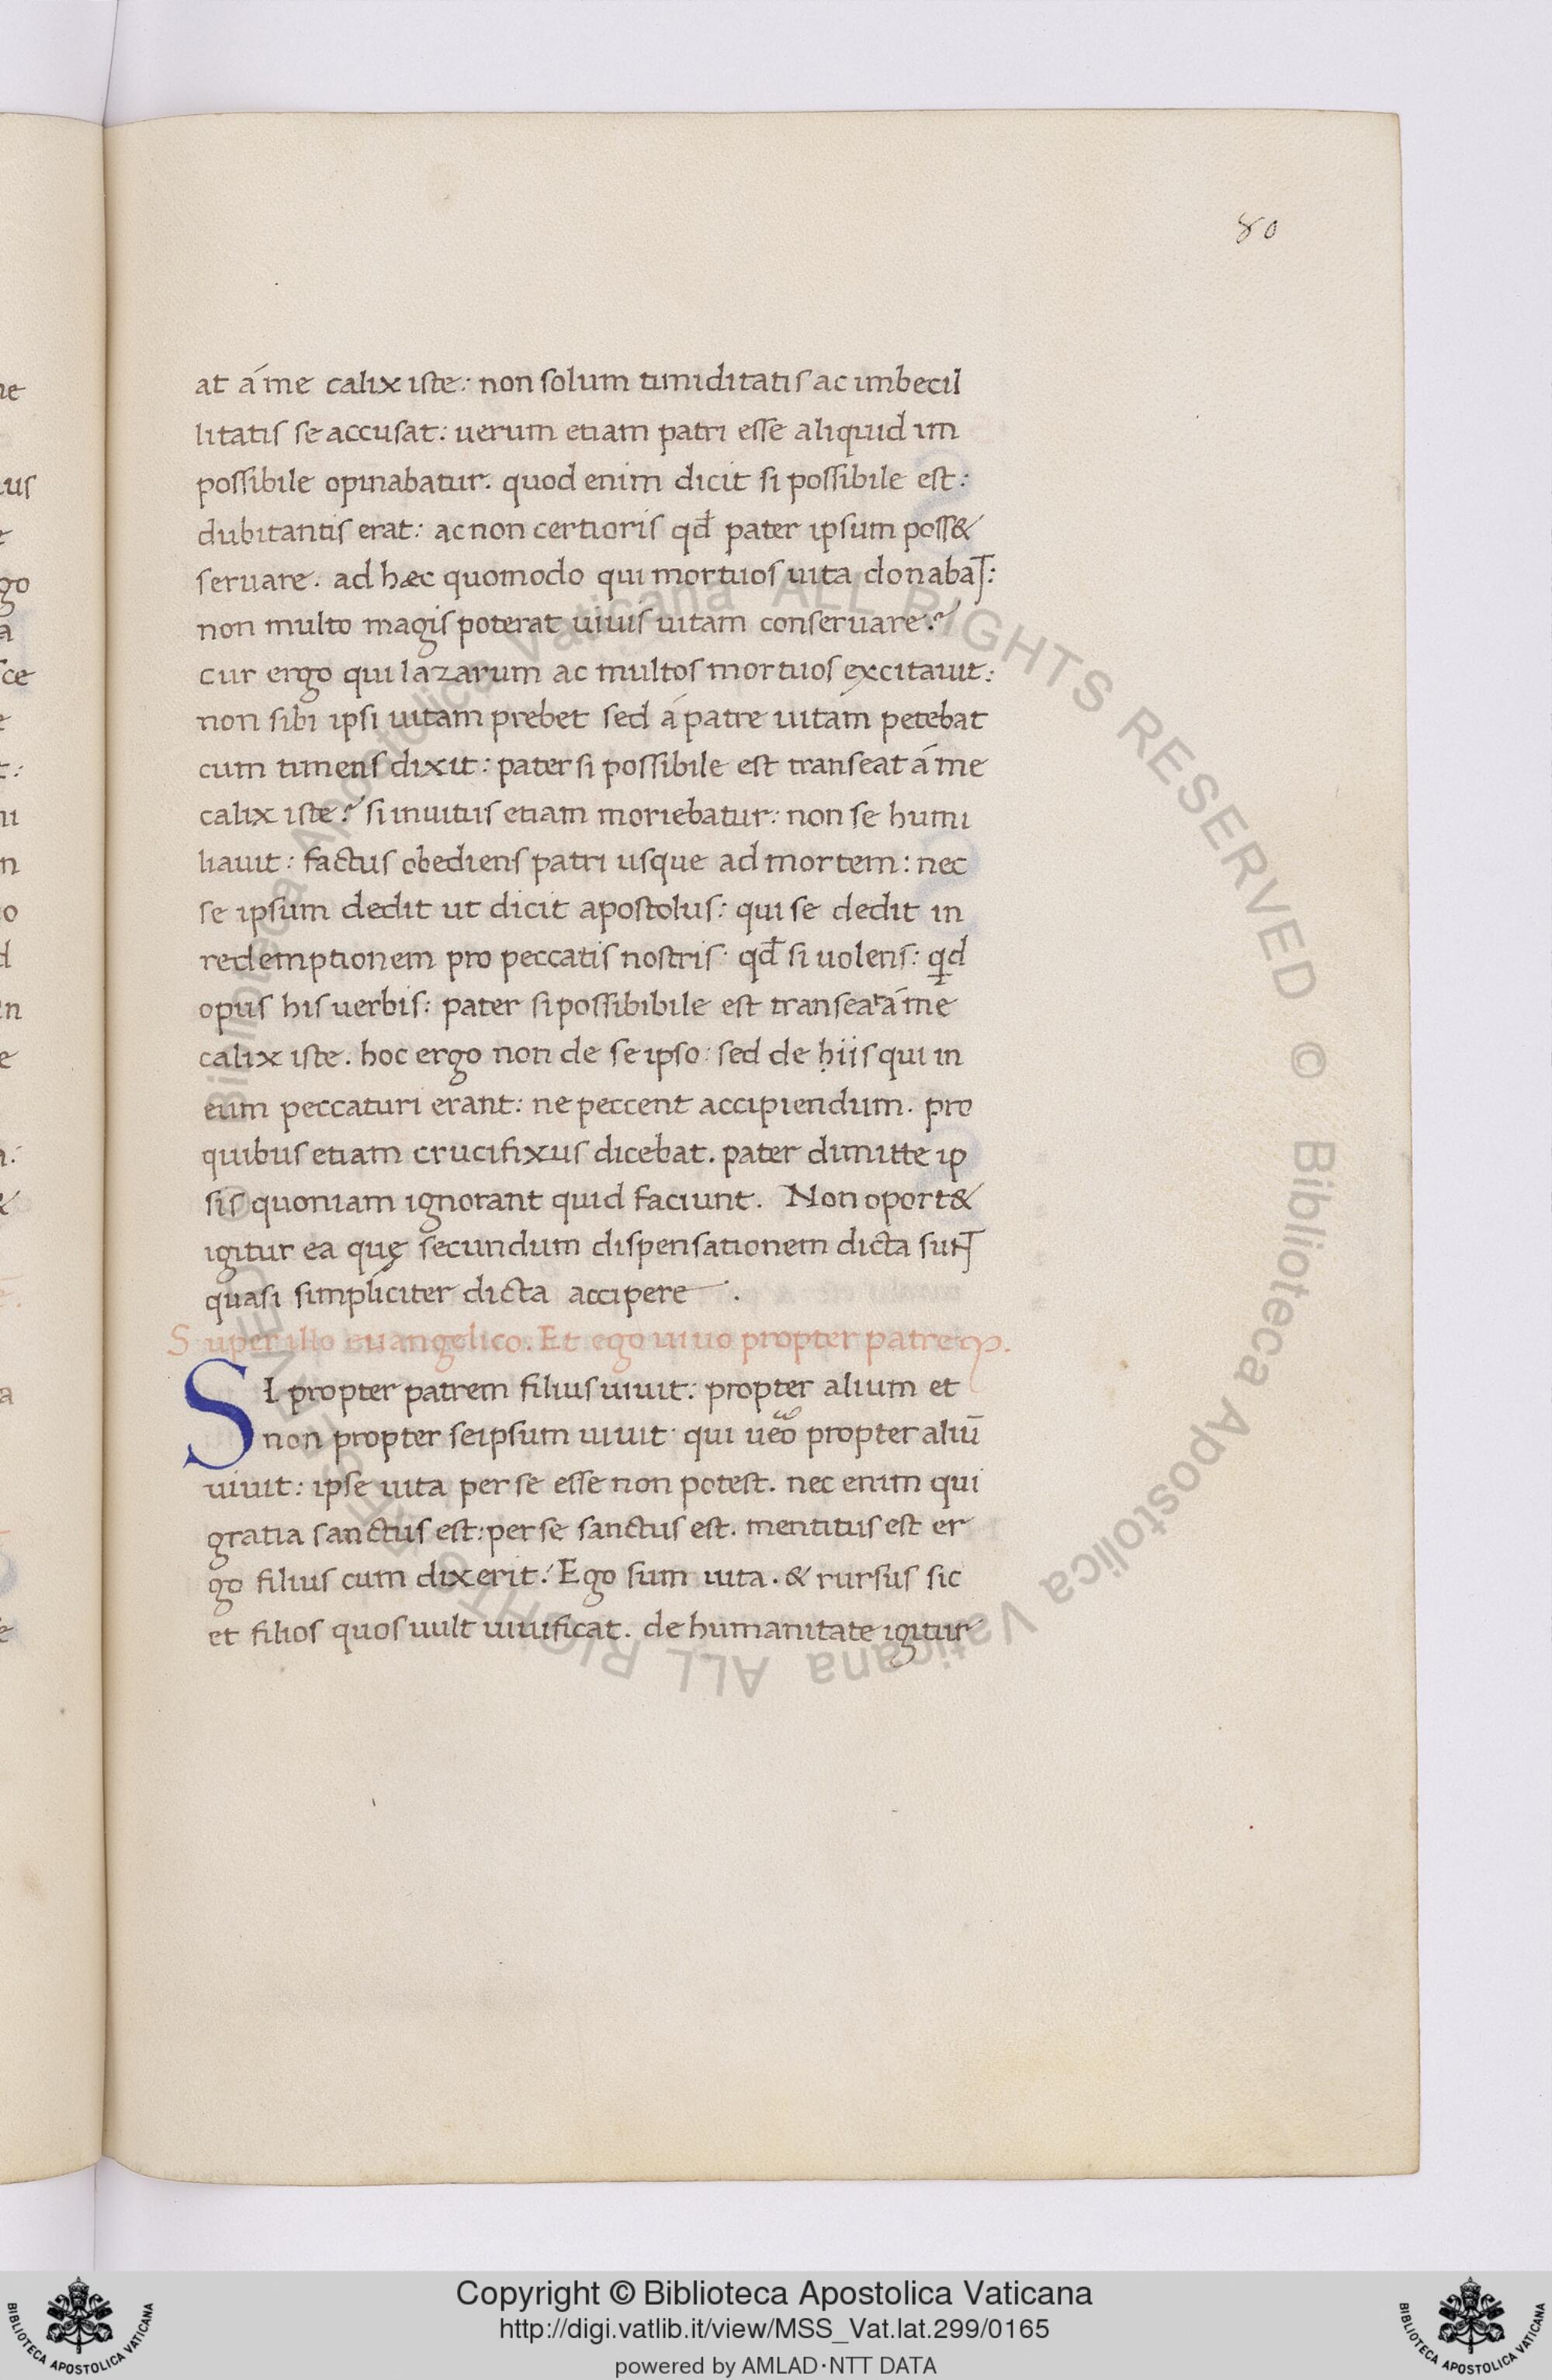 80
at á me calix iste: non solum timiditatis ac imbecil
litatis se accusat: uerum etiam patri esse aliquid im
possibile opinabatur. quod enim dicit si possibile est:
dubitantis erat: ac non certioris qđ pater ipsum poss&
seruare. ad hæc quomodo qui mortuos uita donabat:
non multo magis poterat uiuis uitam conseruare?
cur ergo qui lazarum ac multos mortuos excitauit:
non sibi ipsi uitam prebet sed á patre uitam petebat
cum timens dixit: pater si possibile est transeat á me
calix iste? si inuitus etiam moriebatur: non se humi
liauit: factus obediens patri usque ad mortem: nec
se ipsum dedit ut dicit apostolus: qui se dedit in
redemptionem pro peccatis nostris. qđ si uolens: qd
opus his uerbis: pater si possibibile est transeat á me
calix iste. hoc ergo non de se ipso: sed de ḥiis qui in
eum peccaturi erant: ne peccent accipiendum. pro
quibus etiam crucifixus dicebat. pater dimitte ip
sis quoniam ignorant quid faciunt. Non oport&
igitur ea quę secundum dispensationem dicta sunt
quasi simpliciter dicta accipere.
Super illo euangelico. Et ego uiuo propter patrem.
SI propter patrem filius uiuit: propter alium et
non propter seipsum uiuit. qui ueo propter aliū
uiuit: ipse uita per se esse non potest. nec enim qui
gratia sanctus est: per se sanctus est. mentitus est er
go filius cum dixerit: Ego sum uita. & rursus sic
et filios quos uult uiuificat. de humanitate igitur
ALL RIGHTS RESERVED © Biblioteca Apostolica Vaticana
Copyright © Biblioteca Apostolica Vaticana
http://digi.vatlib.it/view/MSS_Vat.lat.299/0165
powered by AMLAD·NTT DATA
BIBLIOTECA APOSTOLICA VATICANA
BIBLIOTECA APOSTOLICA VATICANA